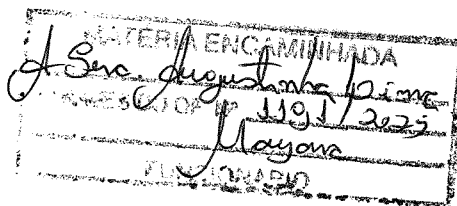 MATERIA ENCAMINHADA
A Sena Augustinha Lima
Nº 1191/2025
Mayara
FUNCIONARIO